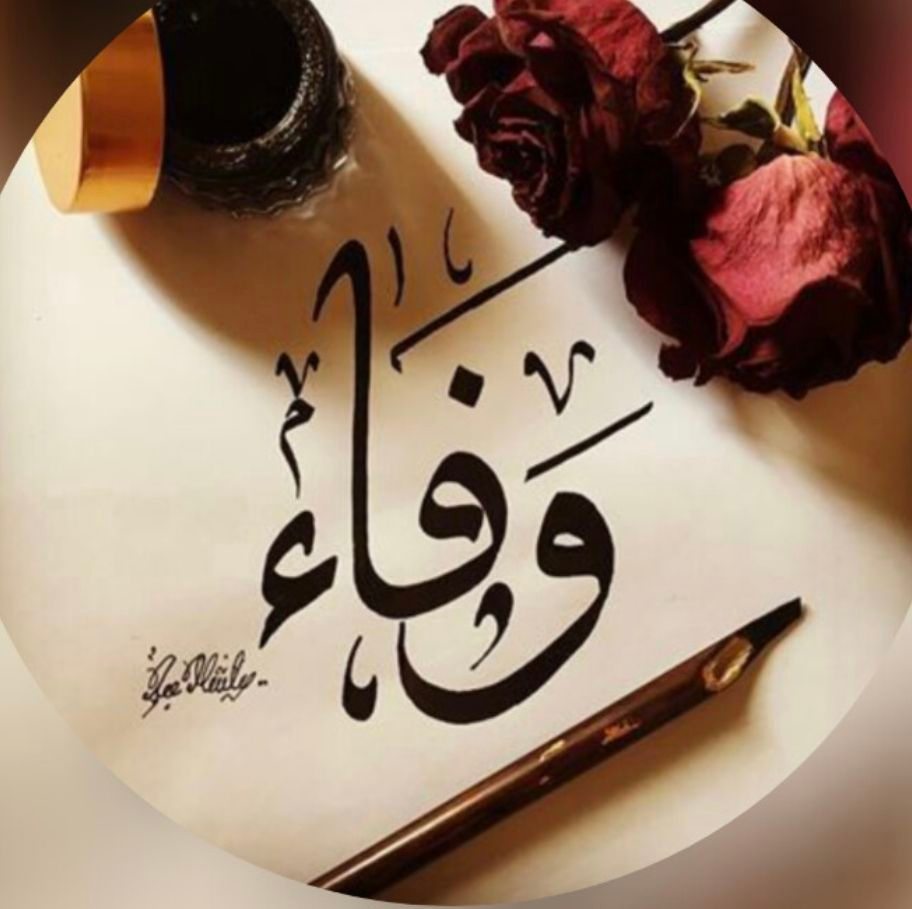 وَفَاء